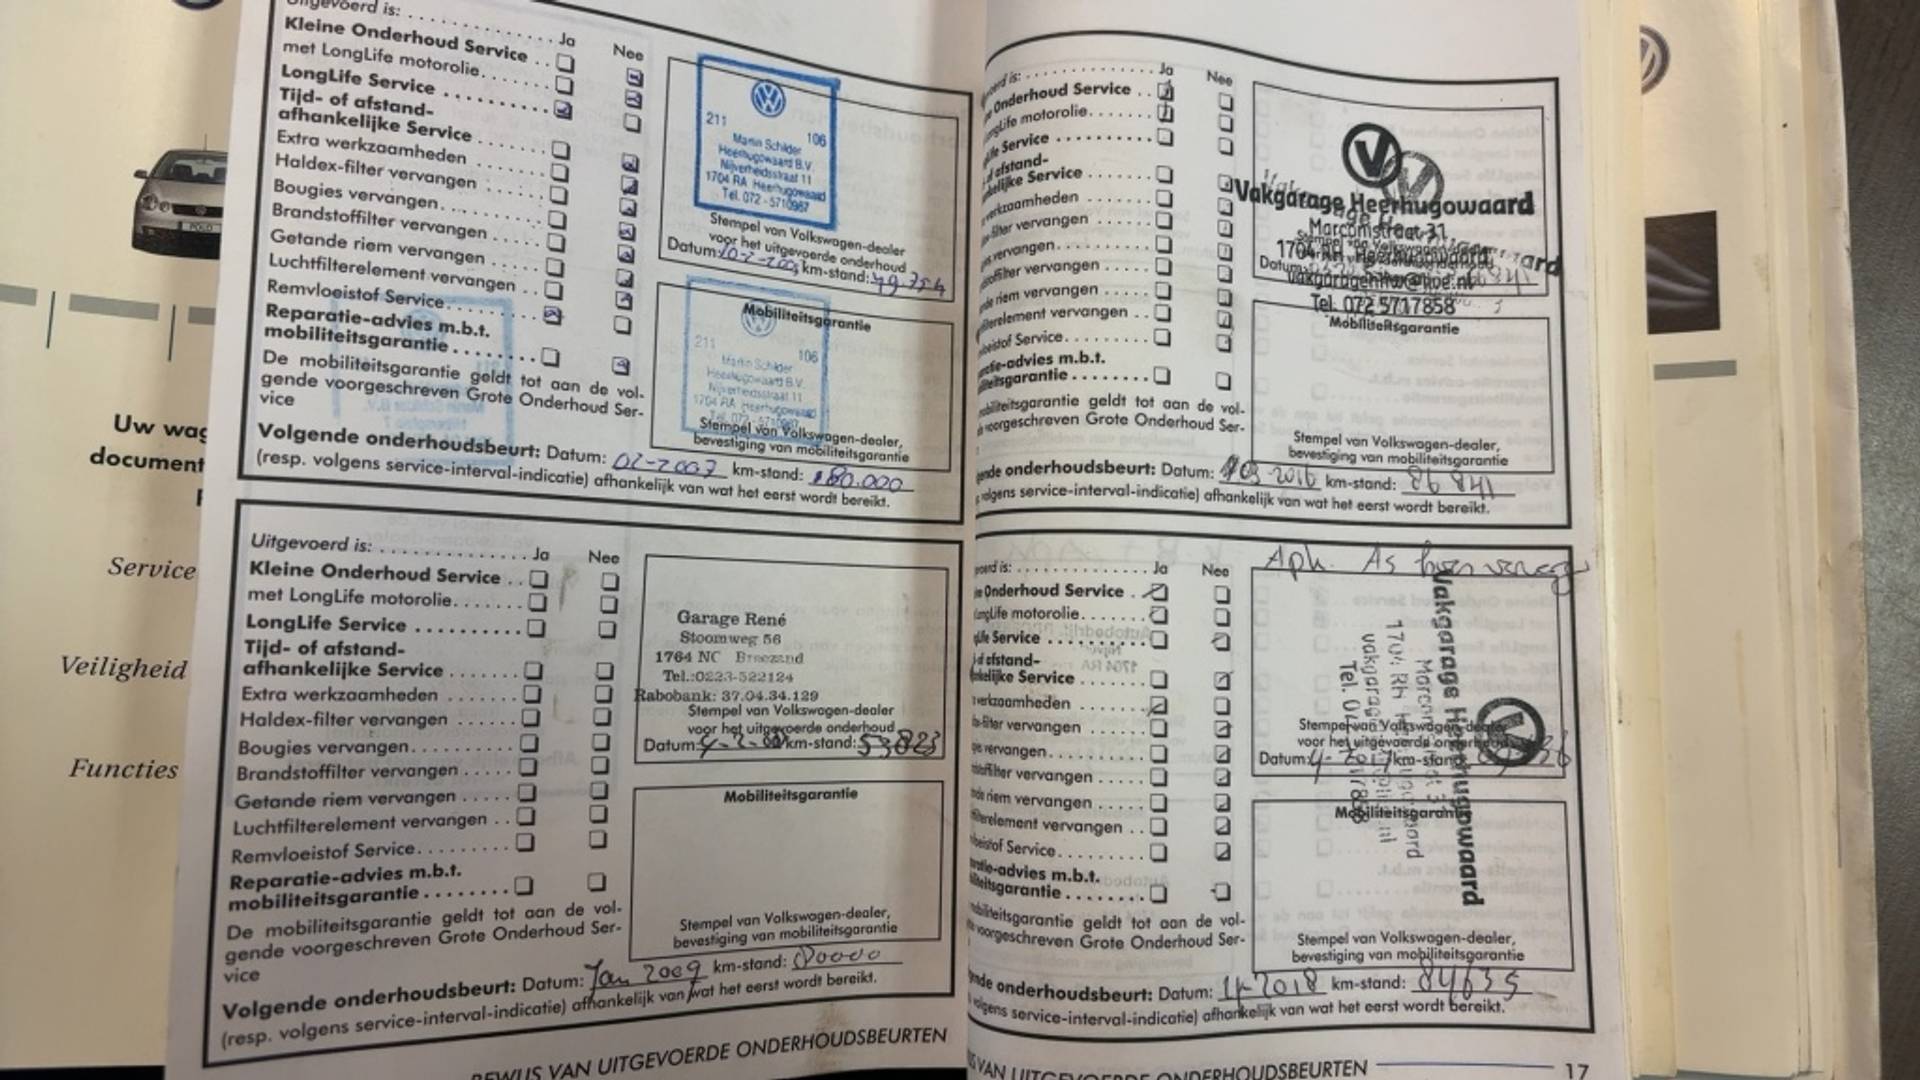 Uitgevoerd is:
Ja
Nee
Kleine Onderhoud Service
met LongLife motorolie
LongLife Service
Tijd- of afstand-
afhankelijke Service
Extra werkzaamheden
Haldex-filter vervangen
Bougies vervangen
Brandstoffilter vervangen
Getande riem vervangen
Luchtfilterelement vervangen
Remvloeistof Service
Reparatie-advies m.b.t.
mobiliteitsgarantie
De mobiliteitsgarantie geldt tot aan de vol-
gende voorgeschreven Grote Onderhoud Ser-
vice
211
106
Martin Schilder
Heerhugowaard B.V.
Nijverheidsstraat 11
1704 RA Heerhugowaard
Tel. 072 - 5710967
Stempel van Volkswagen-dealer
voor het uitgevoerde onderhoud
Datum: km-stand: 49.754
Mobiliteitsgarantie
211
106
Martin Schilder
Heerhugowaard B.V.
Nijverheidsstraat 11
1704 RA Heerhugowaard
Tel. 072 - 5710967
Stempel van Volkswagen-dealer,
bevestiging van mobiliteitsgarantie
Volgende onderhoudsbeurt: Datum: 02-2007 km-stand: 80.000
(resp. volgens service-interval-indicatie) afhankelijk van wat het eerst wordt bereikt.
Uitgevoerd is:
Ja
Nee
Kleine Onderhoud Service
met LongLife motorolie
LongLife Service
Tijd- of afstand-
afhankelijke Service
Extra werkzaamheden
Haldex-filter vervangen
Bougies vervangen
Brandstoffilter vervangen
Getande riem vervangen
Luchtfilterelement vervangen
Remvloeistof Service
Reparatie-advies m.b.t.
mobiliteitsgarantie
De mobiliteitsgarantie geldt tot aan de vol-
gende voorgeschreven Grote Onderhoud Ser-
vice
Garage René
Stoomweg 56
1764 NC Breezand
Tel.:0223-522124
Rabobank: 37.04.34.129
Stempel van Volkswagen-dealer
voor het uitgevoerde onderhoud
Datum: km-stand: 53823
Mobiliteitsgarantie
Stempel van Volkswagen-dealer,
bevestiging van mobiliteitsgarantie
Volgende onderhoudsbeurt: Datum: Jan 2009 km-stand: 80000
(resp. volgens service-interval-indicatie) afhankelijk van wat het eerst wordt bereikt.
BEWIJS VAN UITGEVOERDE ONDERHOUDSBEURTEN
is:
Ja
Nee
Onderhoud Service
LongLife motorolie
Service
afstand-
Service
vervangen
vervangen
vervangen
riem vervangen
vervangen
Service
m.b.t.
mobiliteitsgarantie geldt tot aan de vol-
voorgeschreven Grote Onderhoud Ser-
Vakgarage Heerhugowaard
Marcomstraat 31
Tel. 072 5717858
Datum:
Mobiliteitsgarantie
Stempel van Volkswagen-dealer,
bevestiging van mobiliteitsgarantie
onderhoudsbeurt: Datum: 03-2016 km-stand: 86 841
volgens service-interval-indicatie) afhankelijk van wat het eerst wordt bereikt.
is:
Ja
Nee
Onderhoud Service
LongLife motorolie
Service
afstand-
Service
werkzaamheden
vervangen
vervangen
vervangen
riem vervangen
vervangen
Service
m.b.t.
mobiliteitsgarantie geldt tot aan de vol-
voorgeschreven Grote Onderhoud Ser-
Vakgarage Heerhugowaard
Stempel van Volkswagen-dealer
voor het uitgevoerde onderhoud
Datum: 4-2017 km-stand
Mobiliteitsgarantie
Stempel van Volkswagen-dealer,
bevestiging van mobiliteitsgarantie
onderhoudsbeurt: Datum: 2018 km-stand: 84635
volgens service-interval-indicatie) afhankelijk van wat het eerst wordt bereikt.
VAN UITGEVOERDE ONDERHOUDSBEURTEN
17
POLO
Uw
document
Service
Veiligheid
Functies